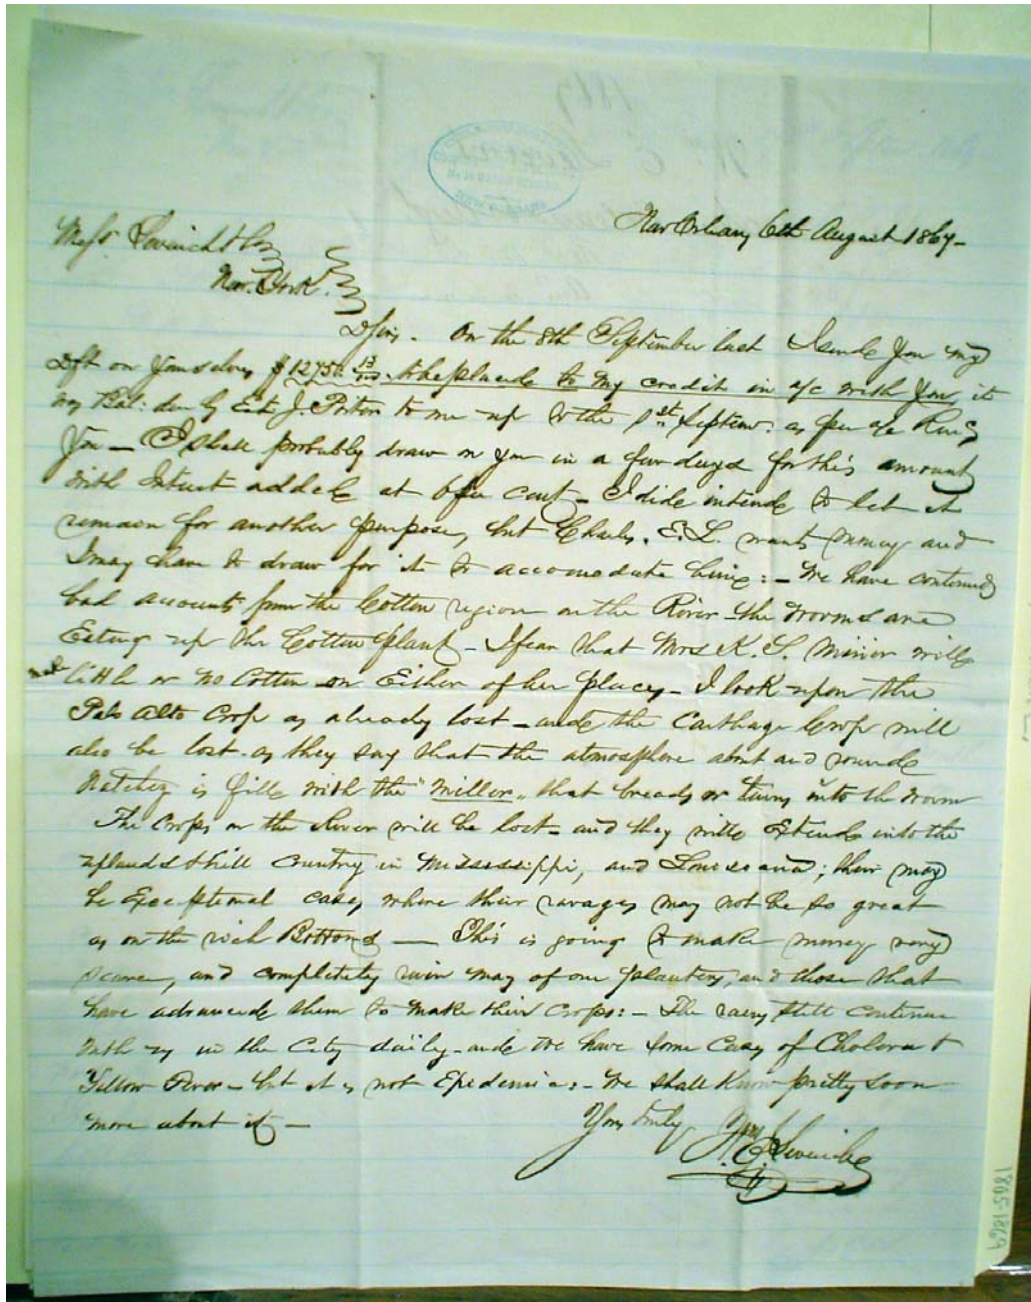 New Orleans 6th August 1867-
Messrs Leverich & Co
New York.
D Sirs. On the 8th September last I sende you my
Dft on yourselves $12750 13/100 to be placede to my credit in a/c with you, it
was Bal: due by Est. J. Porter to me up to the 1st Septem: as per a/c
you — I shall probably draw on you in a few days for this amount
with Intrest added at 6 per cent - I dide intende to let it
remain for another purpose, but Charles. E. L. wants money and
I may have to draw for it to accomodate him: - We have continued
bad accounts from the Cotton region on the River - the worms are
Eating up the Cotton plant - I fear that Mrs K. S. Minor will
make little or no Cotton on Either of her places - I look upon the
Palo Alto Crop as already lost - and the Carthage Crop will
also be lost - as they say that the atmosphere about and rounde
Natchez is fille with the "Miller" that breads or turns into the worm
The Crops on the River will be lost - and they will Extende into the
uplands & hill Country in Mississippi, and Louisiana; their may
be Exceptional cases where their ravages may not be so great
as on the rich Bottoms — This is going to make money very
scarce, and completely ruin many of our planters, and those that
have advancede them to make their Crops: - The rains still continue
with us in the City daily - and we have some Cases of Cholera &
Yellow Fever - but it is not Epidemic: - We shall Know pretty soon
more about it —
Yours truly
Wm E Leverich
1865-1869